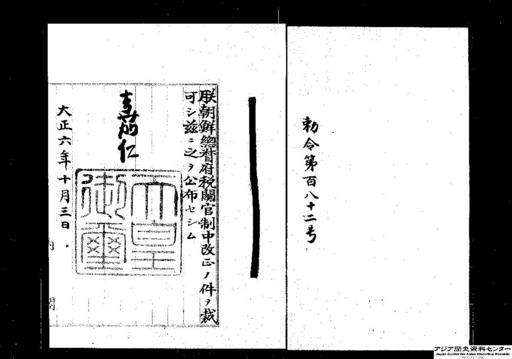 勅令第百八十二号
朕朝鮮總督府税關官制中改正ノ件ヲ裁
可シ茲ニ之ヲ公布セシム
嘉仁
天皇御璽
大正六年十月三日
内閣
アジア歴史資料センター
Japan Center for Asian Historical Records